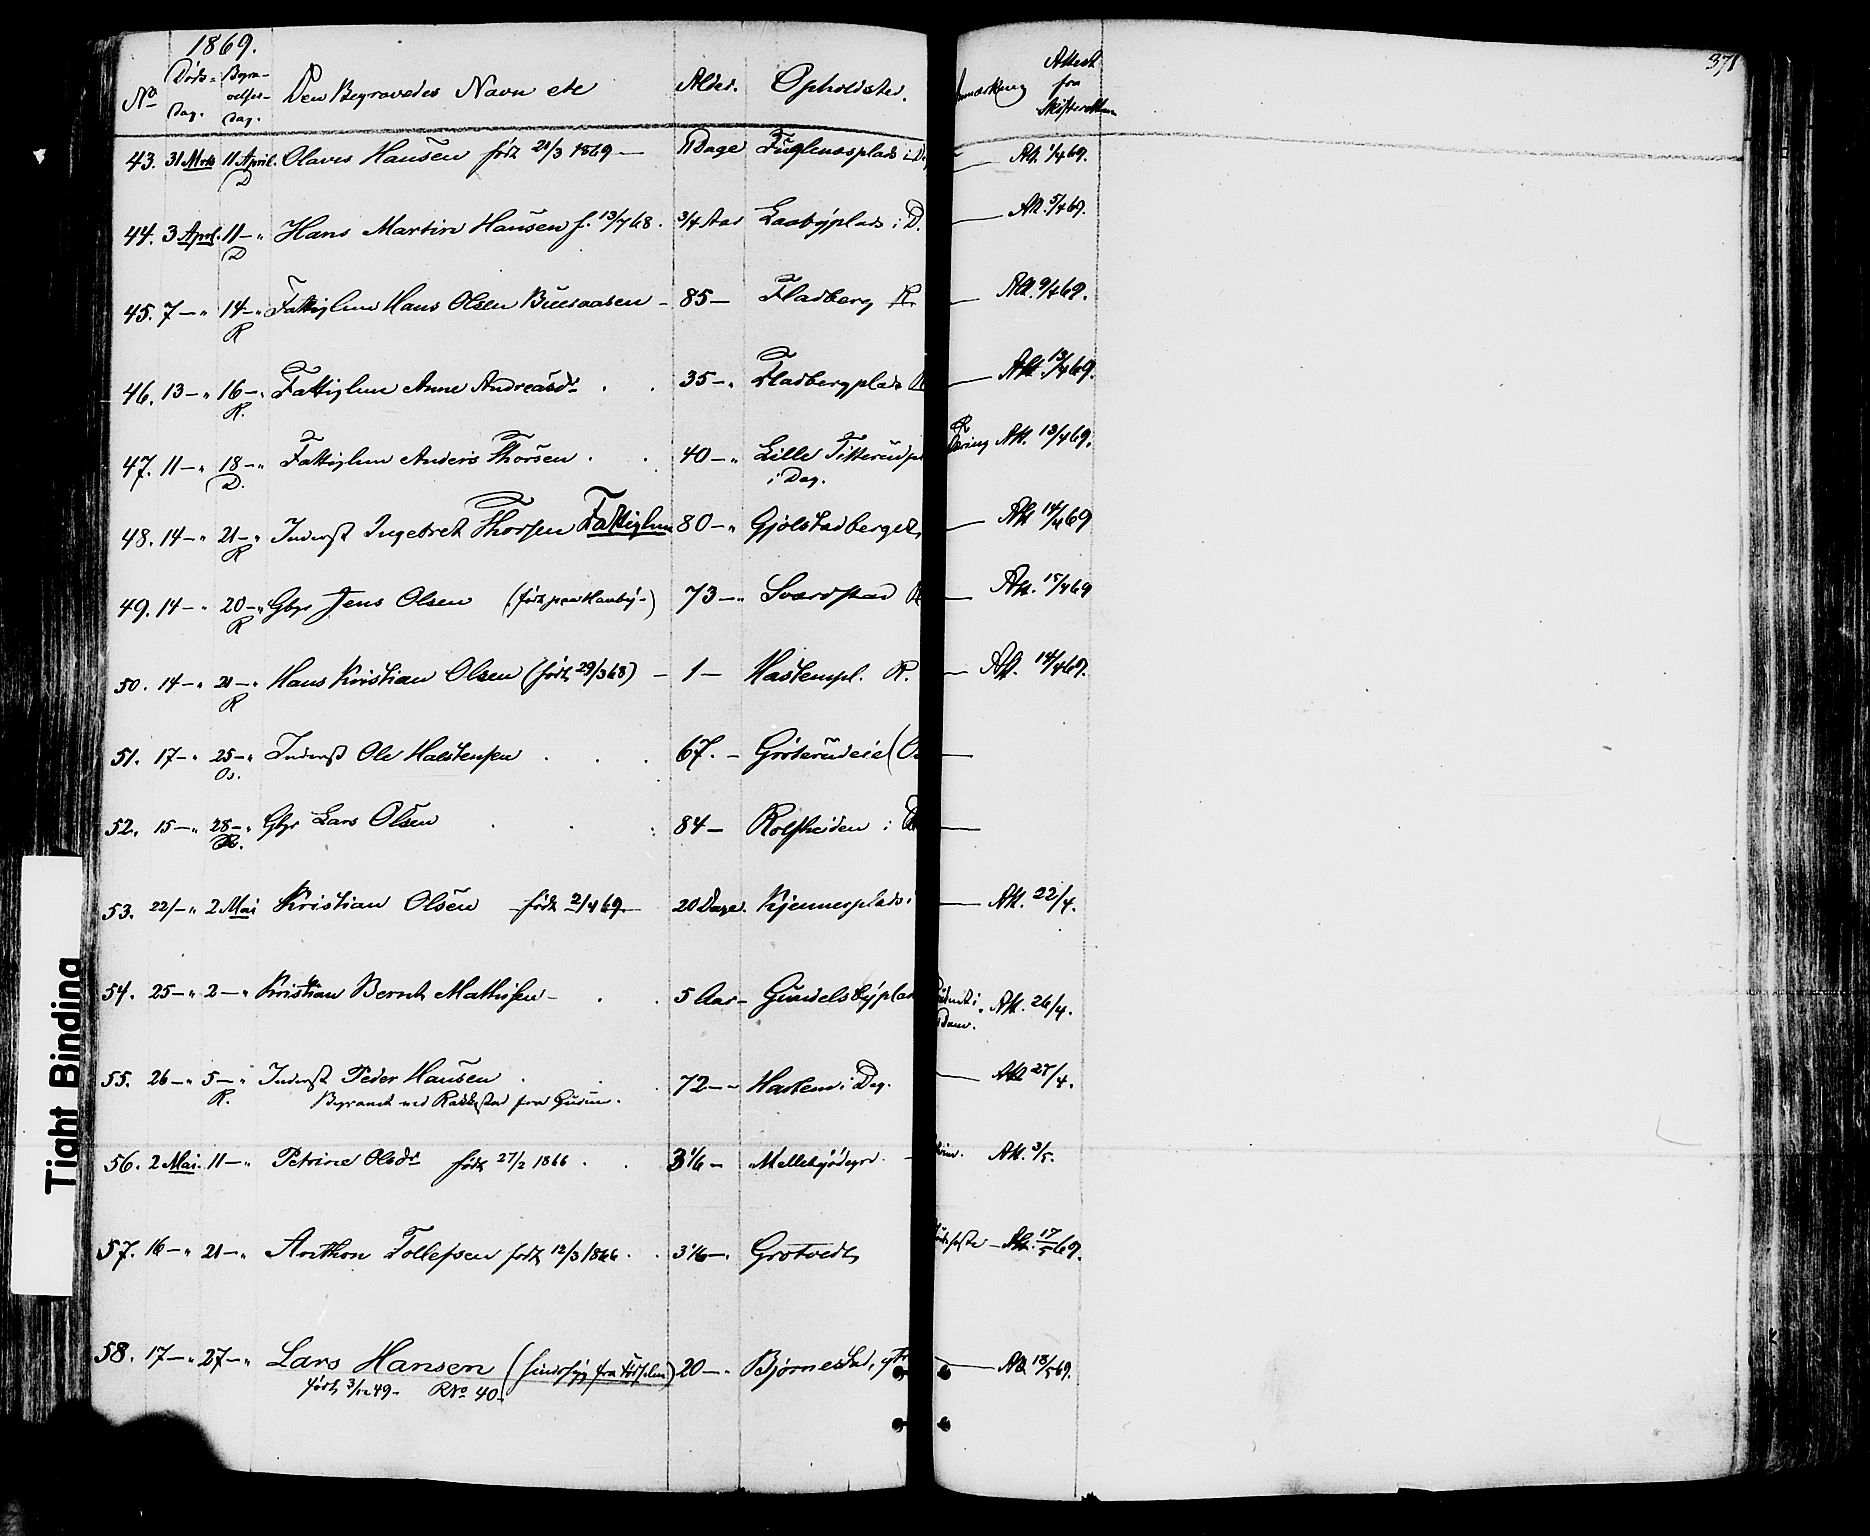 1869.
No Døds- dag. Begra- velses- dag. Den Begravedes Navn etc Alder. Opholdsted. Attest fra Skifteretten 371
43. 31 Mrts 11 April. Olaves Hansen født 21/3 1869 — 11 Dage Fuglenesplads i D Att. 1/4 69.
D
44. 3 April. 11 — " Hans Martin Hansen f. 13/7 68. 3/4 Aar Laabyplads i D. — Att. 5/4 69.
D
45. 7 — " 14 — " Fattiglem Hans Olsen Buesaasen — 85 — Fladberg R. — Att. 9/4 69.
R
46. 13 — " 16 — " Fattiglem Anne Andreasdr . . 35 — " Fladbergplads R — Att. 13/4 69.
R.
47. 11 — " 18 — " Fattiglem Anders Thorsen . . 40 — " Lille Titterudpl Att. 13/4 69.
D. i Deg.
48. 14 — " 21 — " Inderst Ingebret Thorsen Fattiglem 80 — " Gjølstadberget, — Att 14/4 69
R
49. 14 — " 20 — " Gbr Jens Olsen (født paa Hauby-) 73 — " Sværdstad R — Att. 15/4 69
R
50. 14 — " 21 — " Hans Kristian Olsen (født 29/3 68) — 1 — Haslempl. R. — Att. 14/4 69.
R
51. 17 — " 25 — " Inderst Ole Halstensen . . . 67. — Grøterudeie (O —
Os.
52. 15 — " 28 — " Gbr Lars Olsen . . . 84 — Rolfsheiden i —
R.
53. 22/ — " 2 Mai Kristian Olsen — født 2/4 69. — 20 Dage. Kjennerplads i — Att. 22/4.
54. 25 — " 2 — " Kristian Bernt Mathisen — . . 5 Aar — Gundelsbyplads Att. 26/4.
55. 26 — " 5 — " Inderst Peder Hansen . . . 72 — " Haslem i Deg. — Att 27/4.
R. Begravet ved Rakkestad fra
56. 2 Mai. 11 — " Petrine Olsdr født 27/2 1866 . . 3 1/6 — Mellebyødegrd. — Att. 3/5.
57. 16 — " 21 — " Anthon Tollefsen født 12/3 1866 . . 3 1/6 — . Grøtvedt, — Att. 17/5 69.
58. 17 — " 27 — " Lars Hansen (sindssyg fra Fødselen) 20 — . Bjørnestad, ytr — Att 18/5 69.
født 3/12 49 — R No 40.
Tight Binding